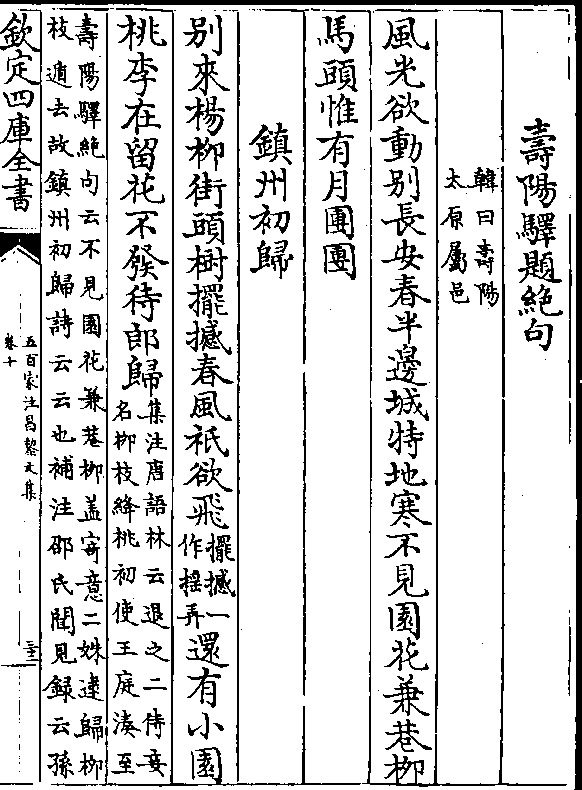 壽陽驛題絶句
韓曰壽陽
太原屬邑
風光欲動别長安春半邊城特地寒不見園花兼巷栁
馬頭惟有月團團
鎮州初歸
别來楊栁街頭樹擺撼春風祇欲飛擺撼一作揺弄還有小園
桃李在留花不發待郎歸集注唐語林云退之二侍妾名栁枝絳桃初使王庭湊至
壽陽驛絶句云不見園花兼巷栁盖寄意二姝逮歸栁
枝遁去故鎮州初歸詩云云也補注邵氏聞見録云孫
欽定四庫全書
五百家注昌黎文集
卷十
三十二